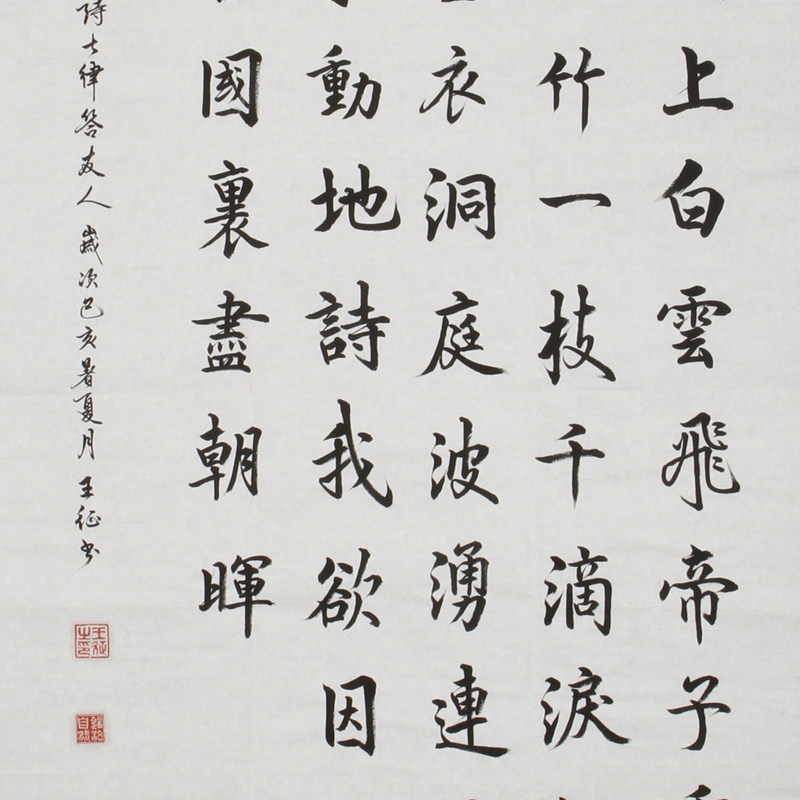 上白雲飛帝予
竹一枝千滴淚
衣洞庭波湧連
動地詩我欲因
國裏盡朝暉
詩七律答友人 歲次己亥暑夏月 王征書
王征之印
自然